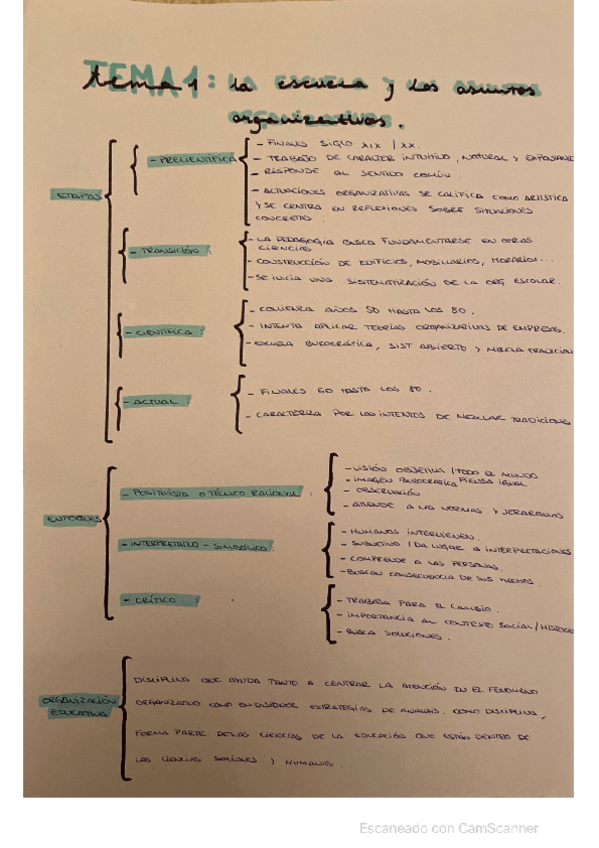 TEMA 1: la escuela y los asuntos
organizativos.
ETAPAS
- PRECIENTÍFICA
- FINALES SIGLO XIX / XX.
- TRABAJO DE CARÁCTER INTUITIVO, NATURAL Y
- RESPONDE AL SENTIDO COMÚN.
- ACTUACIONES ORGANIZATIVAS SE CALIFICA COMO ARTÍSTICA
Y SE CENTRA EN REFLEXIONES SOBRE SITUACIONES
CONCRETAS.
- TRANSICIÓN:
- LA PEDAGOGÍA BUSCA FUNDAMENTARSE EN OTRAS
CIENCIAS
- CONSTRUCCIÓN DE EDIFICIOS, MOBILIARIOS, HORARIOS...
- SE INICIA UNA SISTEMATIZACIÓN DE LA ORG ESCOLAR.
- CIENTÍFICA:
- COMIENZA AÑOS 50 HASTA LOS 80.
- INTENTA APLICAR TEORÍAS ORGANIZATIVAS DE EMPRESAS.
- ESCUELA BUROCRÁTICA, SIST ABIERTO Y MEZCLA TRADICION
- ACTUAL:
- FINALES 60 HASTA LOS 80.
- CARACTERIZA POR LOS INTENTOS DE MEZCLAR TRADICIONES
ENFOQUES
- POSITIVISTA O TÉCNICO RACIONAL
- VISIÓN OBJETIVA / TODO EL MUNDO
PIENSA IGUAL
- IMAGEN BUROCRÁTICA
- OBSERVACIÓN
- ATIENDE A LAS NORMAS Y JERARQUÍAS
- INTERPRETATIVO - SIMBÓLICO:
- HUMANOS INTERVIENEN.
- SUBJETIVO / DA LUGAR A INTERPRETACIONES
- COMPRENDE A LAS PERSONAS.
- BUSCAN CONSECUENCIA DE SUS HECHOS.
- CRÍTICO
- TRABAJA PARA EL CAMBIO.
- IMPORTANCIA AL CONTEXTO SOCIAL /
- BUSCA SOLUCIONES.
ORGANIZACIÓN
EDUCATIVA
DISCIPLINA QUE AYUDA TANTO A CENTRAR LA ATENCIÓN EN EL FENÓMENO
ORGANIZATIVO COMO EN DISEÑAR ESTRATEGIAS DE ANÁLISIS. COMO DISCIPLINA,
FORMA PARTE DE LAS CIENCIAS DE LA EDUCACIÓN QUE ESTÁN DENTRO DE
LAS CIENCIAS SOCIALES Y HUMANAS.
Escaneado con CamScanner